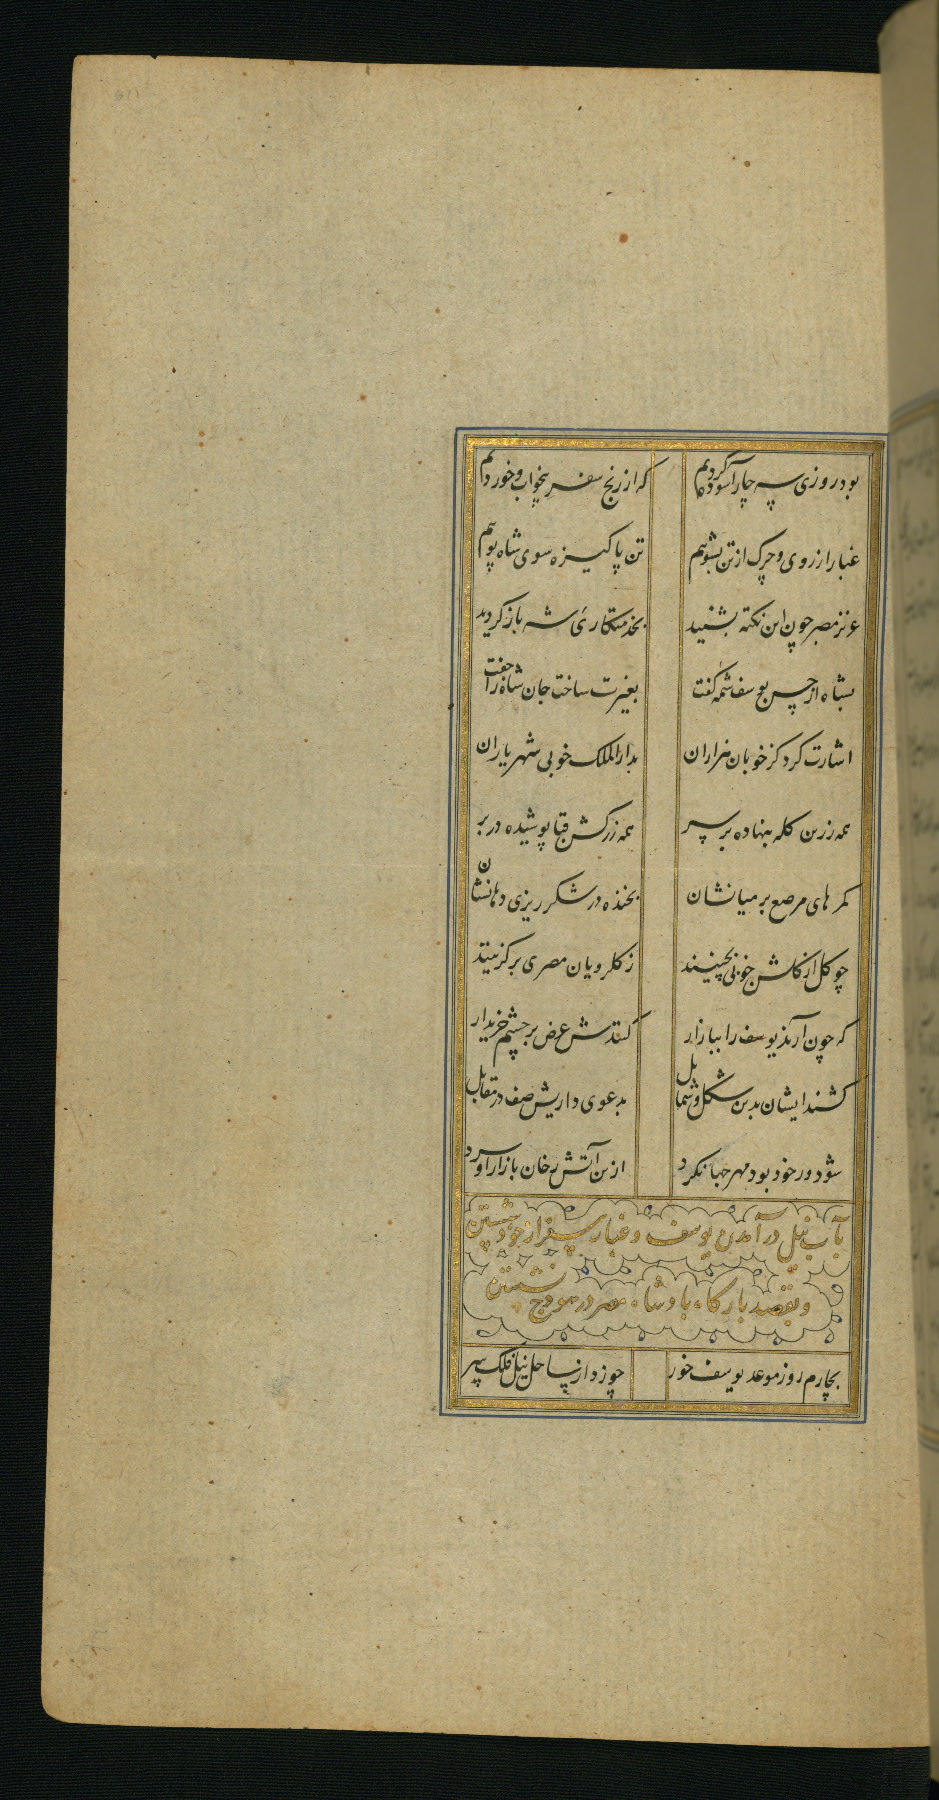 بود روزی سه چار آسوده گردیم که از رنج سفر بیخواب و خوردیم
غبار از روی و چرک از تن بشوییم تن پاکیزه سوی شاه پوییم
عزیز مصر چون این نکته بشنید بخدمتکاری شه باز گردید
بشاه از حسن یوسف شمهٔ گفت بغیرت ساخت جان شاه را جفت
اشارت کرد کز خوبان هزاران بدار الملک خوبی شهریاران
همه زرین کله بنهاده بر سر همه زرکش قبا پوشیده در بر
کمرهای مرصع بر میانشان بخنده در شکر ریزی دهانشان
چو گل از گلشن خوبی بچینند ز گلرویان مصری برگزینند
که چون آرند یوسف را ببازار کنندش عرض بر چشم خریدار
کشند ایشان بدین شکل و شمایل بدعوی داریش صف در مقابل
شود در خود بود مهر جهانگرد ازین آتش رخان بازار او سرد
بآب نیل در آمدن یوسف و غبار سفر از خود شستن
و بقصد بارگاه پادشاه مصر در هودج نشستن
بچارم روز موعد یوسف خور چو زد از ساحل نیل فلک سر